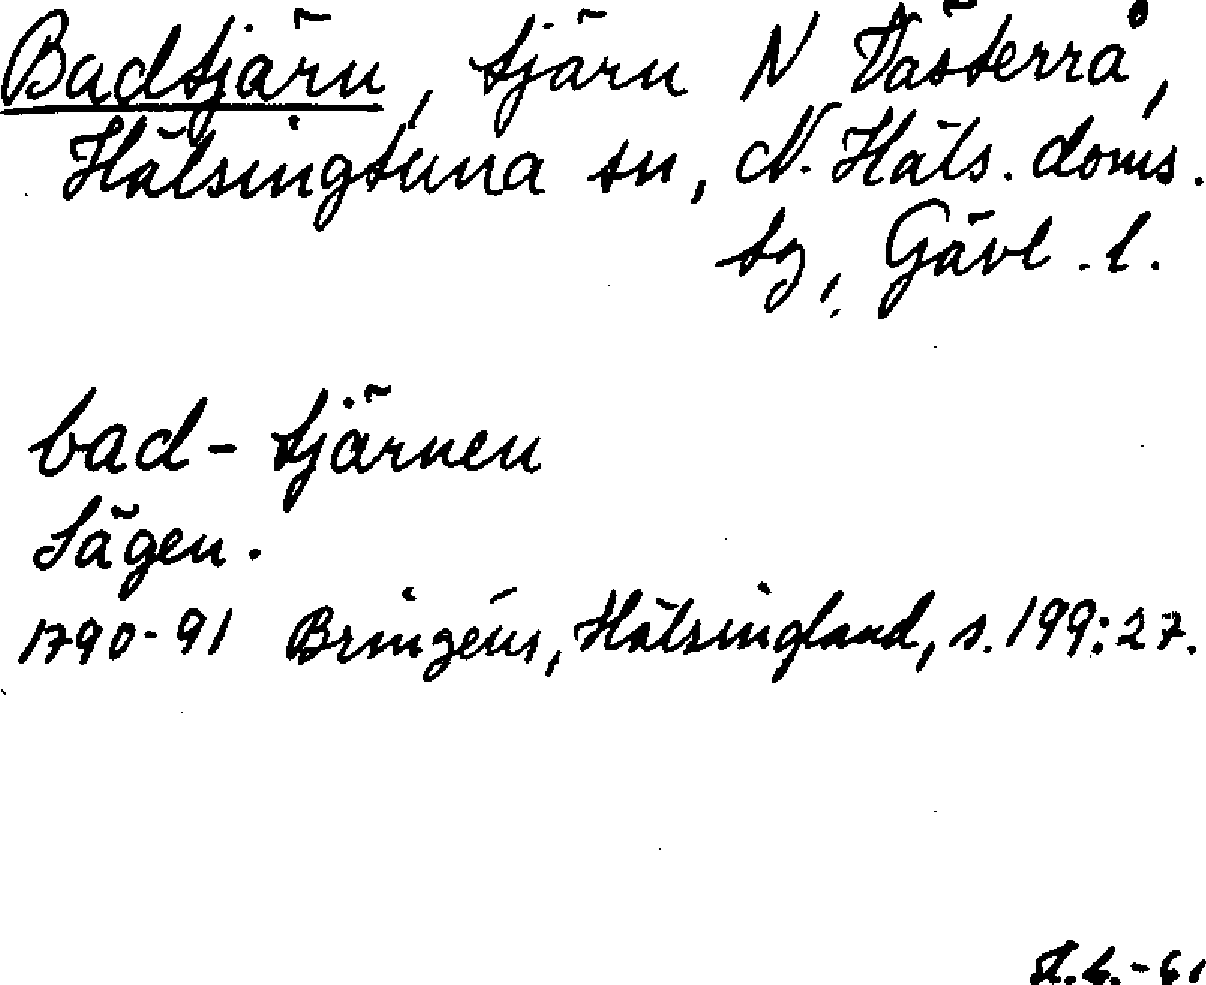 Badtjärn, tjärn N Västerrå,
Hälsingtuna sn, N. Häls. doms.
tg, Gävl. l.
bad-tjärnen
Sägen.
1790-91 Bringéus, Hälsingland, s. 199:27.